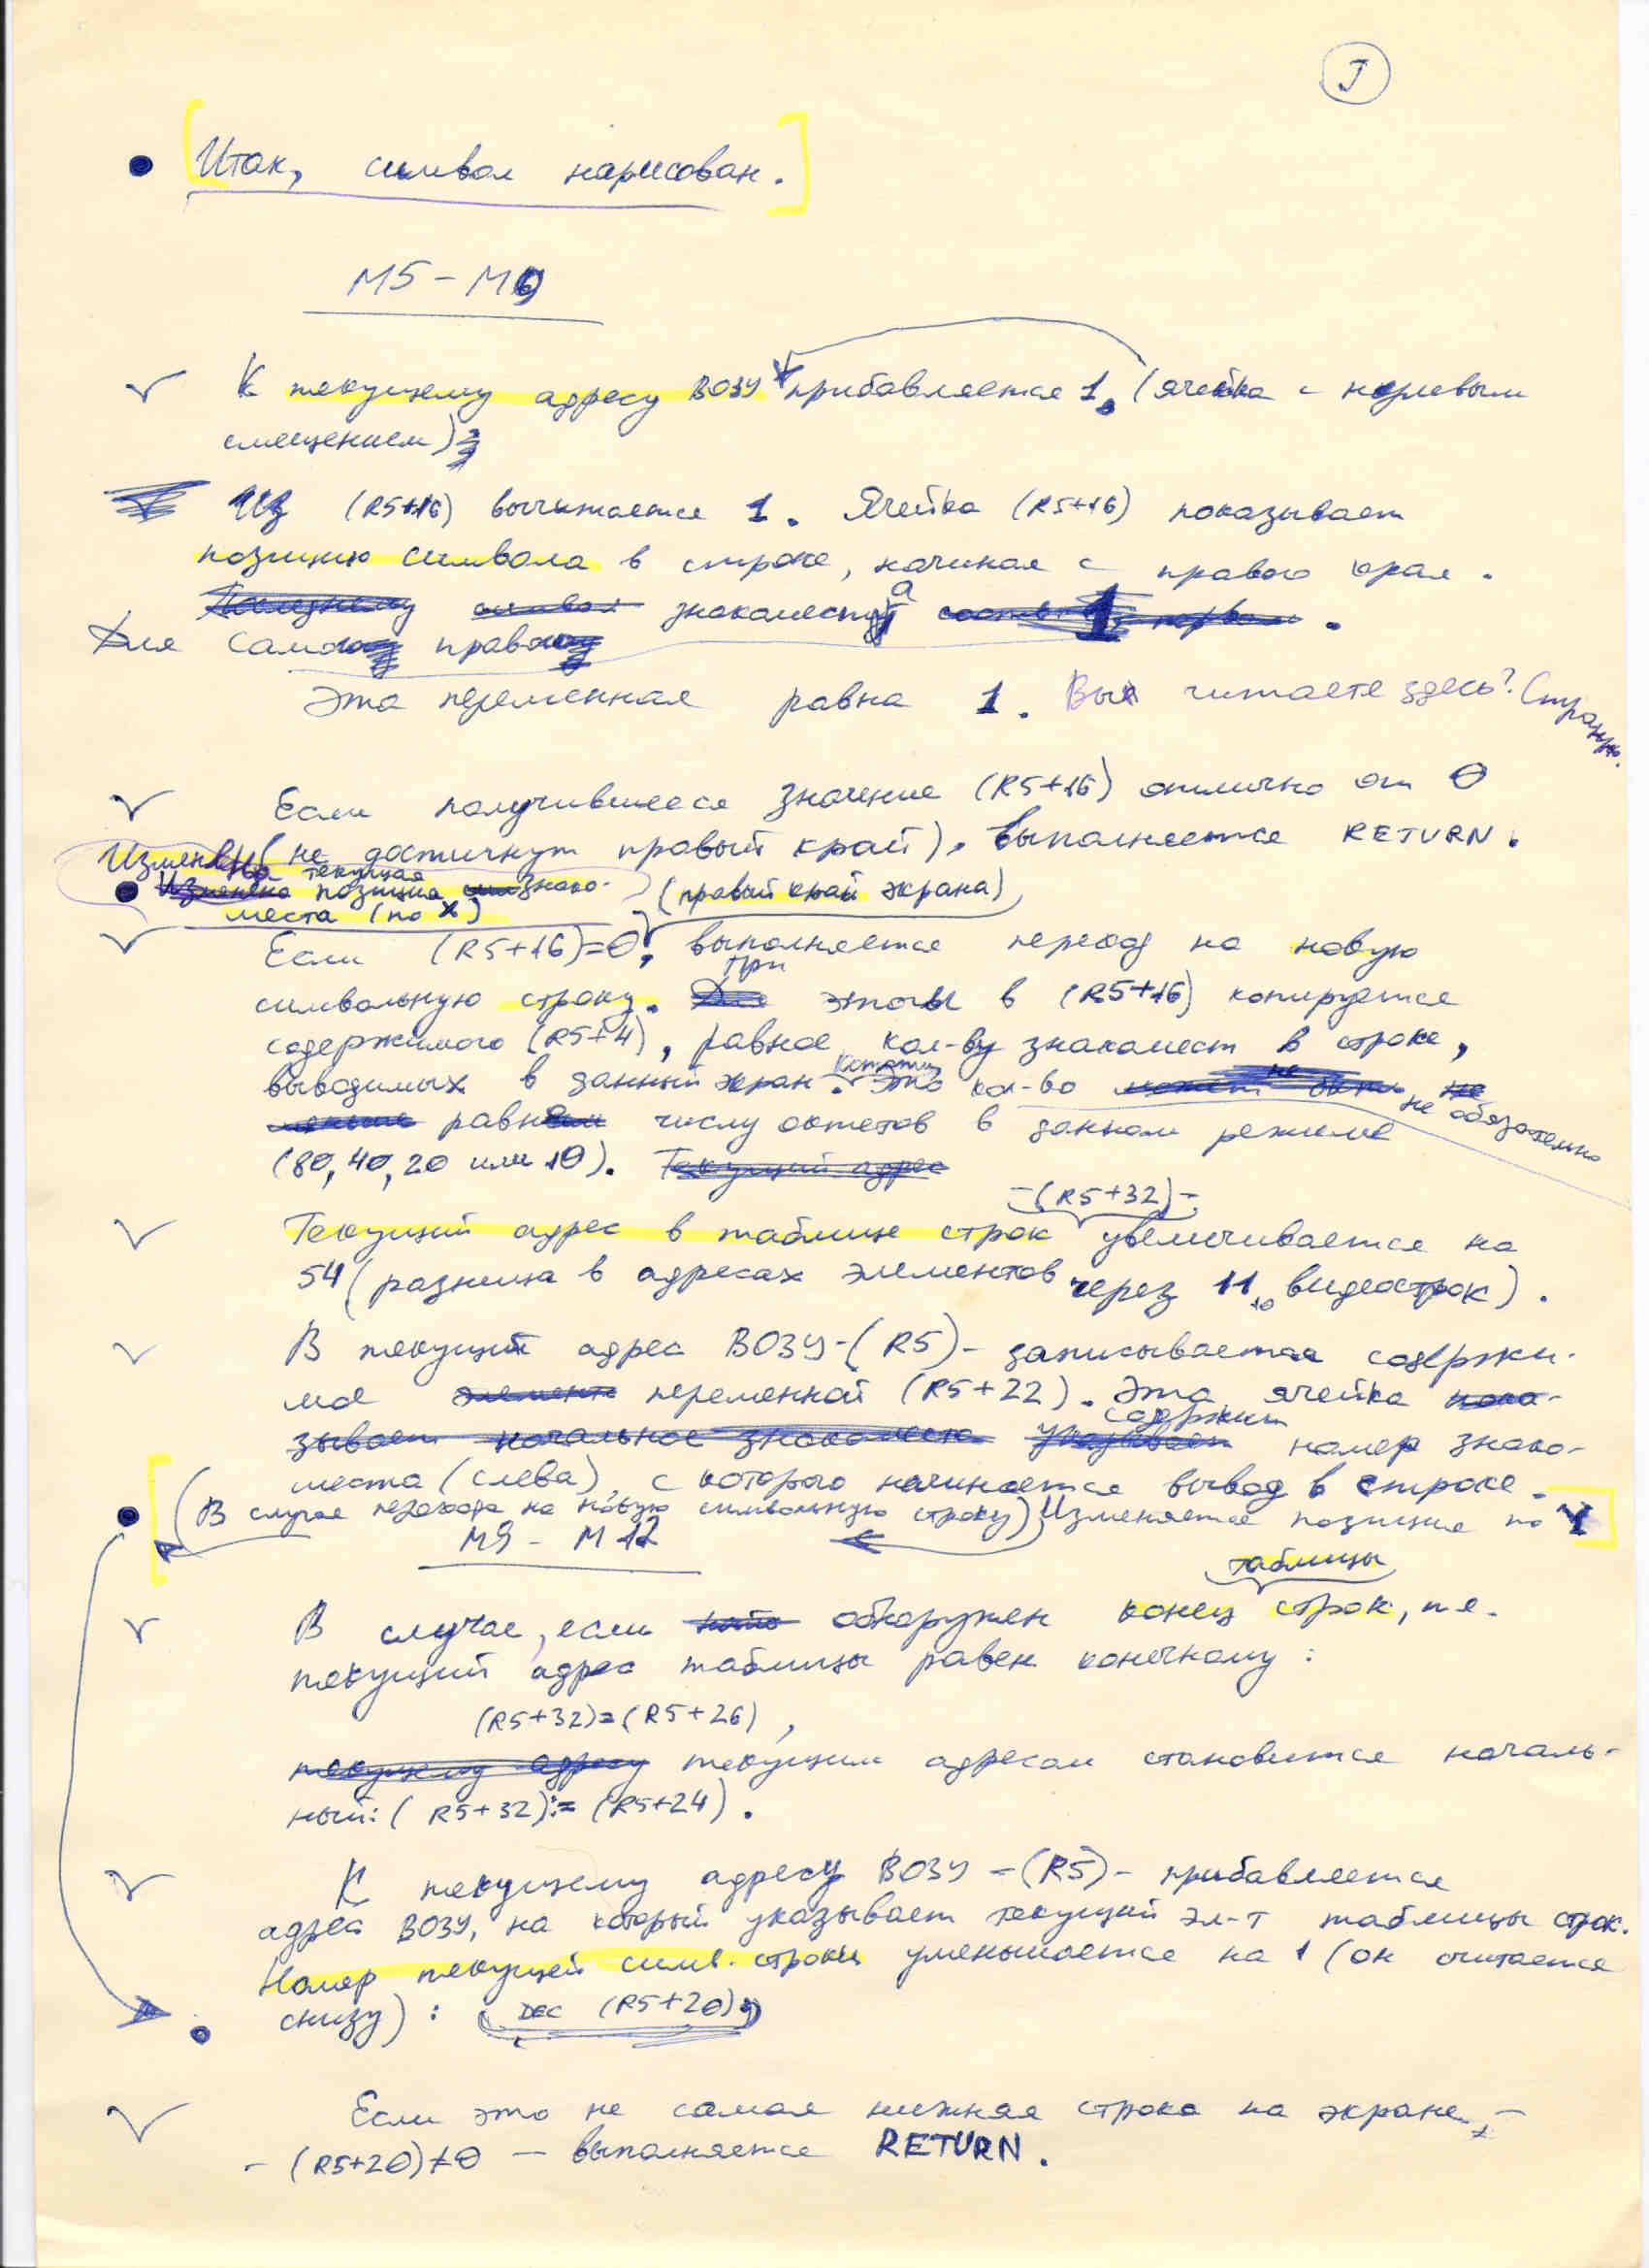 J
Итак, символ нарисован.
М5 – М9
К текущему адресу ВОЗУ прибавляется 1. (ячейка с нулевым
смещением)
Из (R5+16) вычитается 1. Ячейка (R5+16) показывает
позицию символа в строке, начиная с правого края.
знакоместа
Для самого правого
Эта переменная равна 1. Вы читаете здесь? Странно.
Если получившееся значение (R5+16) отлично от 0
(не достигнут правый край), выполняется RETURN.
Изменена текущая
позиция знако-
места (по X)
(правый край экрана)
Если (R5+16)=0, выполняется переход на новую
символьную строку. При этом в (R5+16) копируется
содержимого (R5+4), равное кол-ву знакомест в строке,
выводимых в данный экран. Кстати, это кол-во не обязательно
равно числу октетов в данном режиме
(80, 40, 20 или 10). Текущий адрес
-(R5+32)-
Текущий адрес в таблице строк увеличивается на
54 (разница в адресах элементов через 11₁₀ видеострок).
В текущий адрес ВОЗУ-(R5)- записывается содержи-
мое переменной (R5+22). Эта ячейка пока-
зывает начальное знакоместо содержит номер знако-
места (слева), с которого начинается вывод в строке.
(В случае перехода на новую символьную строку) Изменяется позиция по Y
М9 – М12
таблицы
В случае, если обнаружен конец строк, т.е.
текущий адрес таблицы равен конечному:
(R5+32)=(R5+26),
текущему адресу текущим адресом становится началь-
ный: (R5+32):=(R5+24).
К текущему адресу ВОЗУ –(R5)– прибавляется
адрес ВОЗУ, на который указывает текущий эл-т таблицы строк.
Номер текущей симв. строки уменьшается на 1 (он считается
снизу): DEC (R5+20)
Если это не самая нижняя строка на экране –
– (R5+20)≠0 – выполняется RETURN.